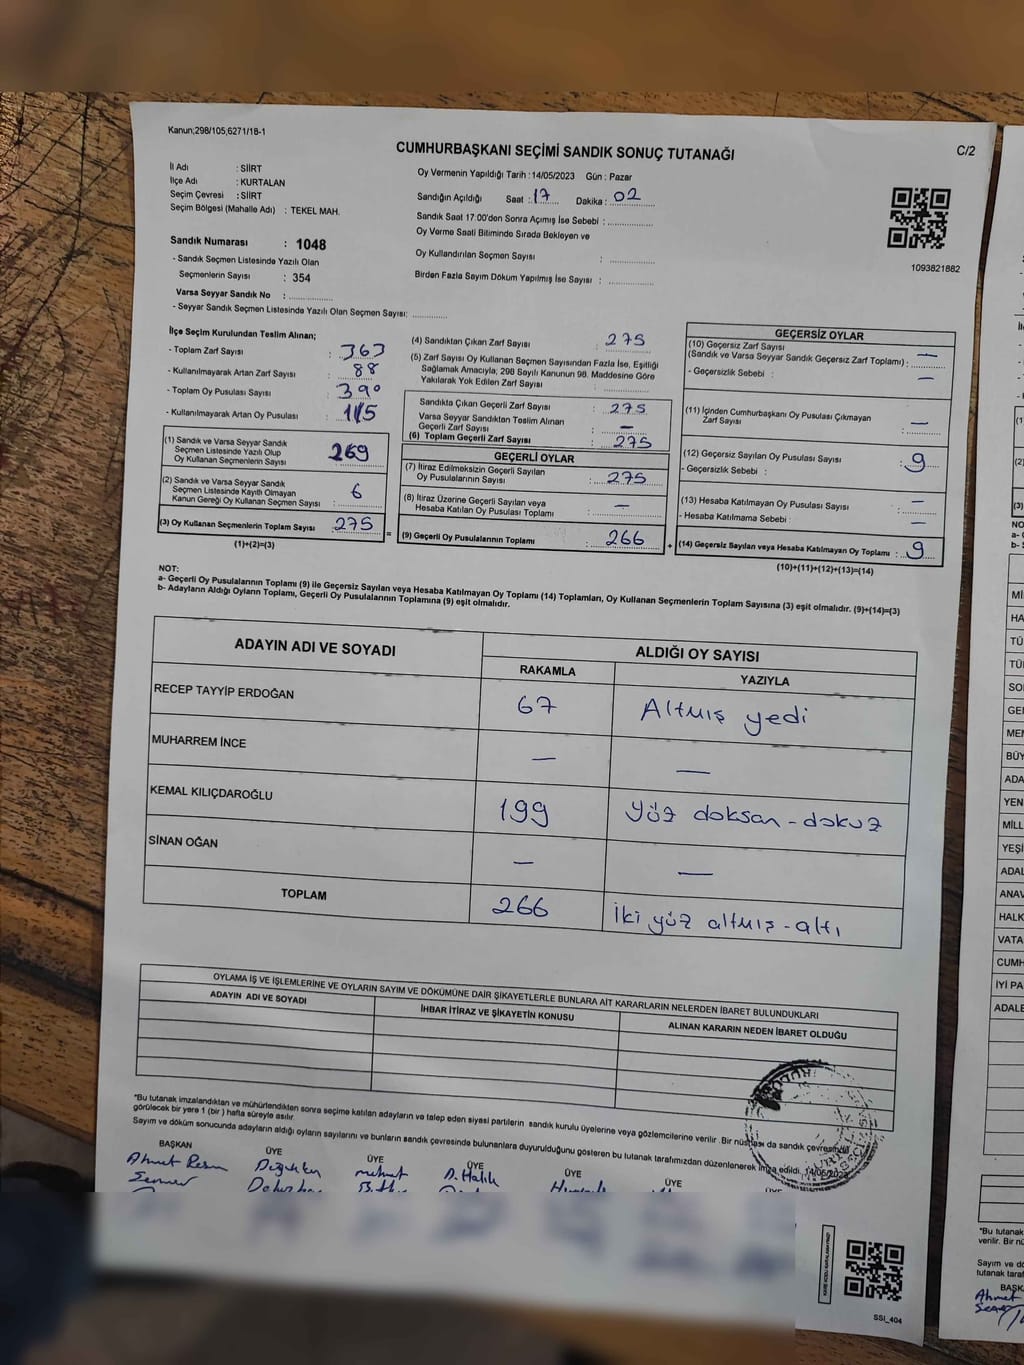 Kanun;298/105,6271/18-1
CUMHURBAŞKANI SEÇİMİ SANDIK SONUÇ TUTANAĞI
C/2
İl Adı : SİİRT
İlçe Adı : KURTALAN
Seçim Çevresi : SİİRT
Seçim Bölgesi (Mahalle Adı) : TEKEL MAH.
Sandık Numarası : 1048
- Sandık Seçmen Listesinde Yazılı Olan
Seçmenlerin Sayısı : 354
Varsa Seyyar Sandık No :
- Seyyar Sandık Seçmen Listesinde Yazılı Olan Seçmen Sayısı:
Oy Vermenin Yapıldığı Tarih :14/05/2023 Gün : Pazar
Sandığın Açıldığı Saat : 17 Dakika : 02
Sandık Saat 17:00'den Sonra Açımış İse Sebebi :
Oy Verme Saati Bitiminde Sırada Bekleyen ve
Oy Kullandırılan Seçmen Sayısı :
Birden Fazla Sayım Döküm Yapılmış İse Sayısı :
1093821882
İlçe Seçim Kurulundan Teslim Alınan;
- Toplam Zarf Sayısı : 363
- Kullanılmayarak Artan Zarf Sayısı : 88
- Toplam Oy Pusulası Sayısı : 390
- Kullanılmayarak Artan Oy Pusulası : 115
(1) Sandık ve Varsa Seyyar Sandık
Seçmen Listesinde Yazılı Olup
Oy Kullanan Seçmenlerin Sayısı : 269
(2) Sandık ve Varsa Seyyar Sandık
Seçmen Listesinde Kayıtlı Olmayan
Kanun Gereği Oy Kullanan Seçmen Sayısı : 6
(3) Oy Kullanan Seçmenlerin Toplam Sayısı : 275
(1)+(2)=(3)
(4) Sandıktan Çıkan Zarf Sayısı : 275
(5) Zarf Sayısı Oy Kullanan Seçmen Sayısından Fazla İse, Eşitliği
Sağlamak Amacıyla; 298 Sayılı Kanunun 98. Maddesine Göre
Yakılarak Yok Edilen Zarf Sayısı :
Sandıkta Çıkan Geçerli Zarf Sayısı : 275
Varsa Seyyar Sandıktan Teslim Alınan
Geçerli Zarf Sayısı : —
(6) Toplam Geçerli Zarf Sayısı : 275
GEÇERLİ OYLAR
(7) İtiraz Edilmeksizin Geçerli Sayılan
Oy Pusulalarının Sayısı : 275
(8) İtiraz Üzerine Geçerli Sayılan veya
Hesaba Katılan Oy Pusulası Toplamı : —
= (9) Geçerli Oy Pusulalarının Toplamı : 266
GEÇERSİZ OYLAR
(10) Geçersiz Zarf Sayısı
(Sandık ve Varsa Seyyar Sandık Geçersiz Zarf Toplamı) : —
- Geçersizlik Sebebi : —
(11) İçinden Cumhurbaşkanı Oy Pusulası Çıkmayan
Zarf Sayısı : —
(12) Geçersiz Sayılan Oy Pusulası Sayısı : 9
- Geçersizlik Sebebi :
(13) Hesaba Katılmayan Oy Pusulası Sayısı : —
- Hesaba Katılmama Sebebi : —
+ (14) Geçersiz Sayılan veya Hesaba Katılmayan Oy Toplamı : 9
(10)+(11)+(12)+(13)=(14)
NOT:
a- Geçerli Oy Pusulalarının Toplamı (9) ile Geçersiz Sayılan veya Hesaba Katılmayan Oy Toplamı (14) Toplamları, Oy Kullanan Seçmenlerin Toplam Sayısına (3) eşit olmalıdır. (9)+(14)=(3)
b- Adayların Aldığı Oyların Toplamı, Geçerli Oy Pusulalarının Toplamına (9) eşit olmalıdır.
ADAYIN ADI VE SOYADI
ALDIĞI OY SAYISI
RAKAMLA YAZIYLA
RECEP TAYYİP ERDOĞAN 67 Altmış yedi
MUHARREM İNCE — —
KEMAL KILIÇDAROĞLU 199 Yüz doksan-dokuz
SİNAN OĞAN — —
TOPLAM 266 İki yüz altmış-altı
OYLAMA İŞ VE İŞLEMLERİNE VE OYLARIN SAYIM VE DÖKÜMÜNE DAİR ŞİKAYETLERLE BUNLARA AİT KARARLARIN NELERDEN İBARET BULUNDUKLARI
ADAYIN ADI VE SOYADI
İHBAR İTİRAZ VE ŞİKAYETİN KONUSU
ALINAN KARARIN NEDEN İBARET OLDUĞU
*Bu tutanak imzalandıktan ve mühürlendikten sonra seçime katılan adayların ve talep eden siyasi partilerin sandık kurulu üyelerine veya gözlemcilerine verilir. Bir nüshası da sandık çevresinde
görülecek bir yere 1 (bir) hafta süreyle asılır.
Sayım ve döküm sonucunda adayların aldığı oyların sayılarını ve bunların sandık çevresinde bulunanlara duyurulduğunu gösteren bu tutanak tarafımızdan düzenlenerek imza edildi. 14/05/2023
BAŞKAN ÜYE ÜYE ÜYE ÜYE ÜYE ÜYE
SSİ_404
HA
TÜ
TÜ
SO
GE
ME
BÜY
ADA
YEN
MİLL
YEŞİ
ADAL
ANAV
HALK
VATA
CUMH
İYİ PA
ADALE
*Bu tutanak
verilir. Bir nü
Sayım ve dö
tutanak taraf
BAŞK